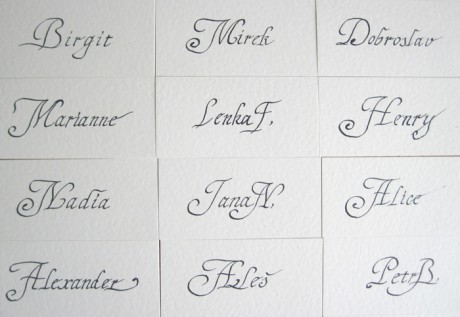 Birgit
Mirek
Dobroslav
Marianne
Lenka F.
Henry
Nadia
Jana N.
Alice
Alexander
Aleš
Petr B.